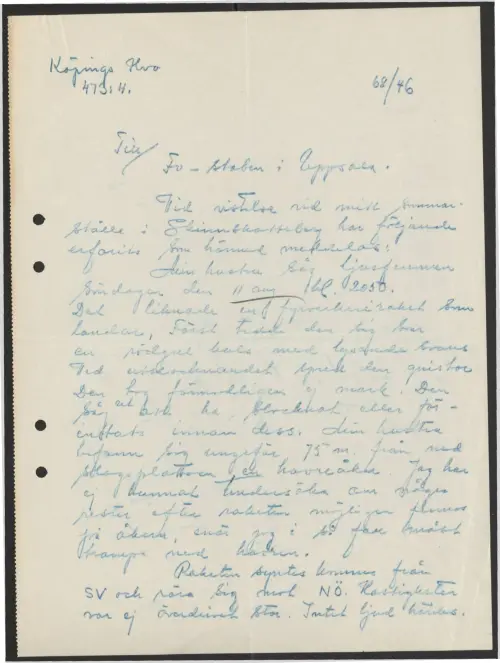 Köpings Kvo
473:4.
68/46
Till
Fo-staben i Uppsala.
Vid vistelse vid mitt sommar-
ställe i Skinnskatteberg har följande
erfarits som härmed meddelas:
Min hustru såg ljusfenomen
Söndagen den 11 aug kl. 2050.
Det liknade en fyrverkeriraket som
landar. Först hade den
en rödgul boll med lysande svans
Vid nedslaget den gnistor
Den tog förmodligen ej mark. Den
såg ut att ha slocknat eller för-
intats innan dess. Min hustru
befann sig ungefär 75 m. från ned
slagsplatsen en havreåker. Jag har
ej hunnat undersöka om några
rester efter raketen möjligen finnes
på åkern, enär jag i så fall måst
trampa ned havren.
Raketen syntes komma från
SV och röra sig mot NÖ. Hastigheten
var ej överdrivet stor. Intet ljud hördes.